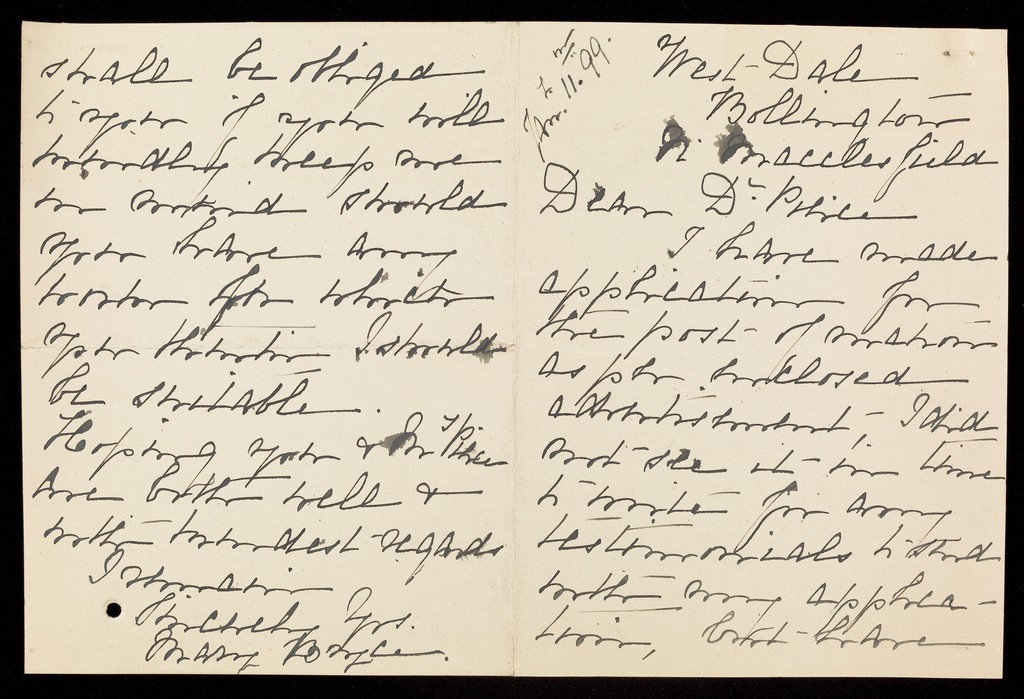 West-Dale
Bollington
Nr. Macclesfield
Jan. 11. 99.
Dear Dr.
I have made
application for
the post of matron
as per enclosed
advertisement, I did
not see it in time
to write for any
testimonials to send
with my applica-
tion, but have
shall be obliged
to you if you will
kindly keep me
in mind should
you have any
for which
you think I should
be suitable.
Hoping you & Mrs
are both well &
with kindest regards
I remain
Sincerely Yrs.
Mary Bryce.